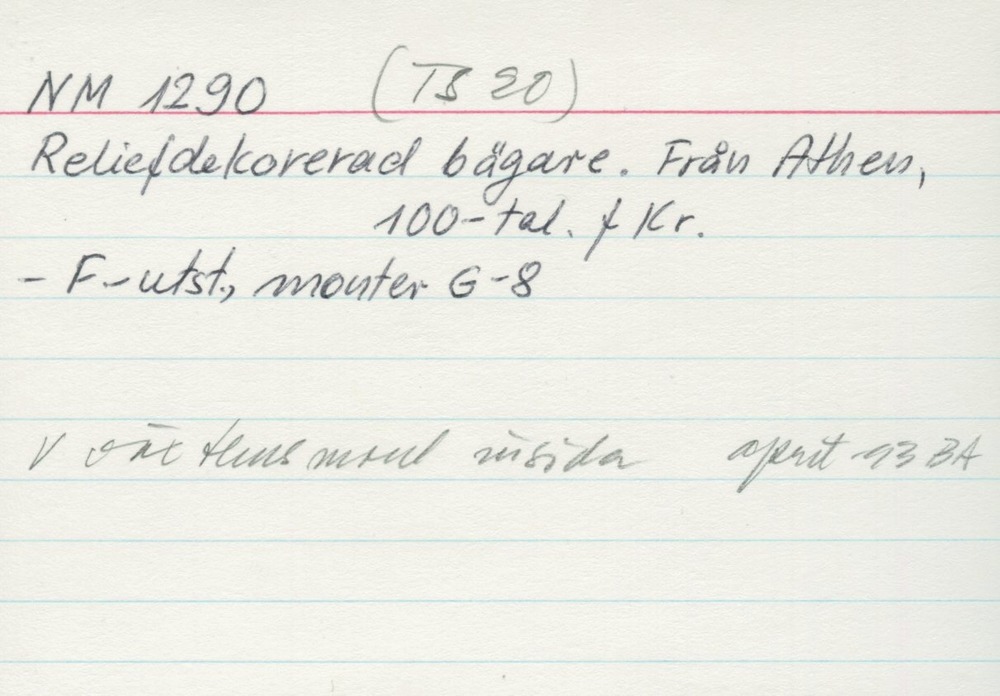 NM 1290 (TS 20)
Reliefdekorerad bägare. Från Athen,
100-tal. f Kr.
- F-utst., monter G-8
V insida april 93 BA